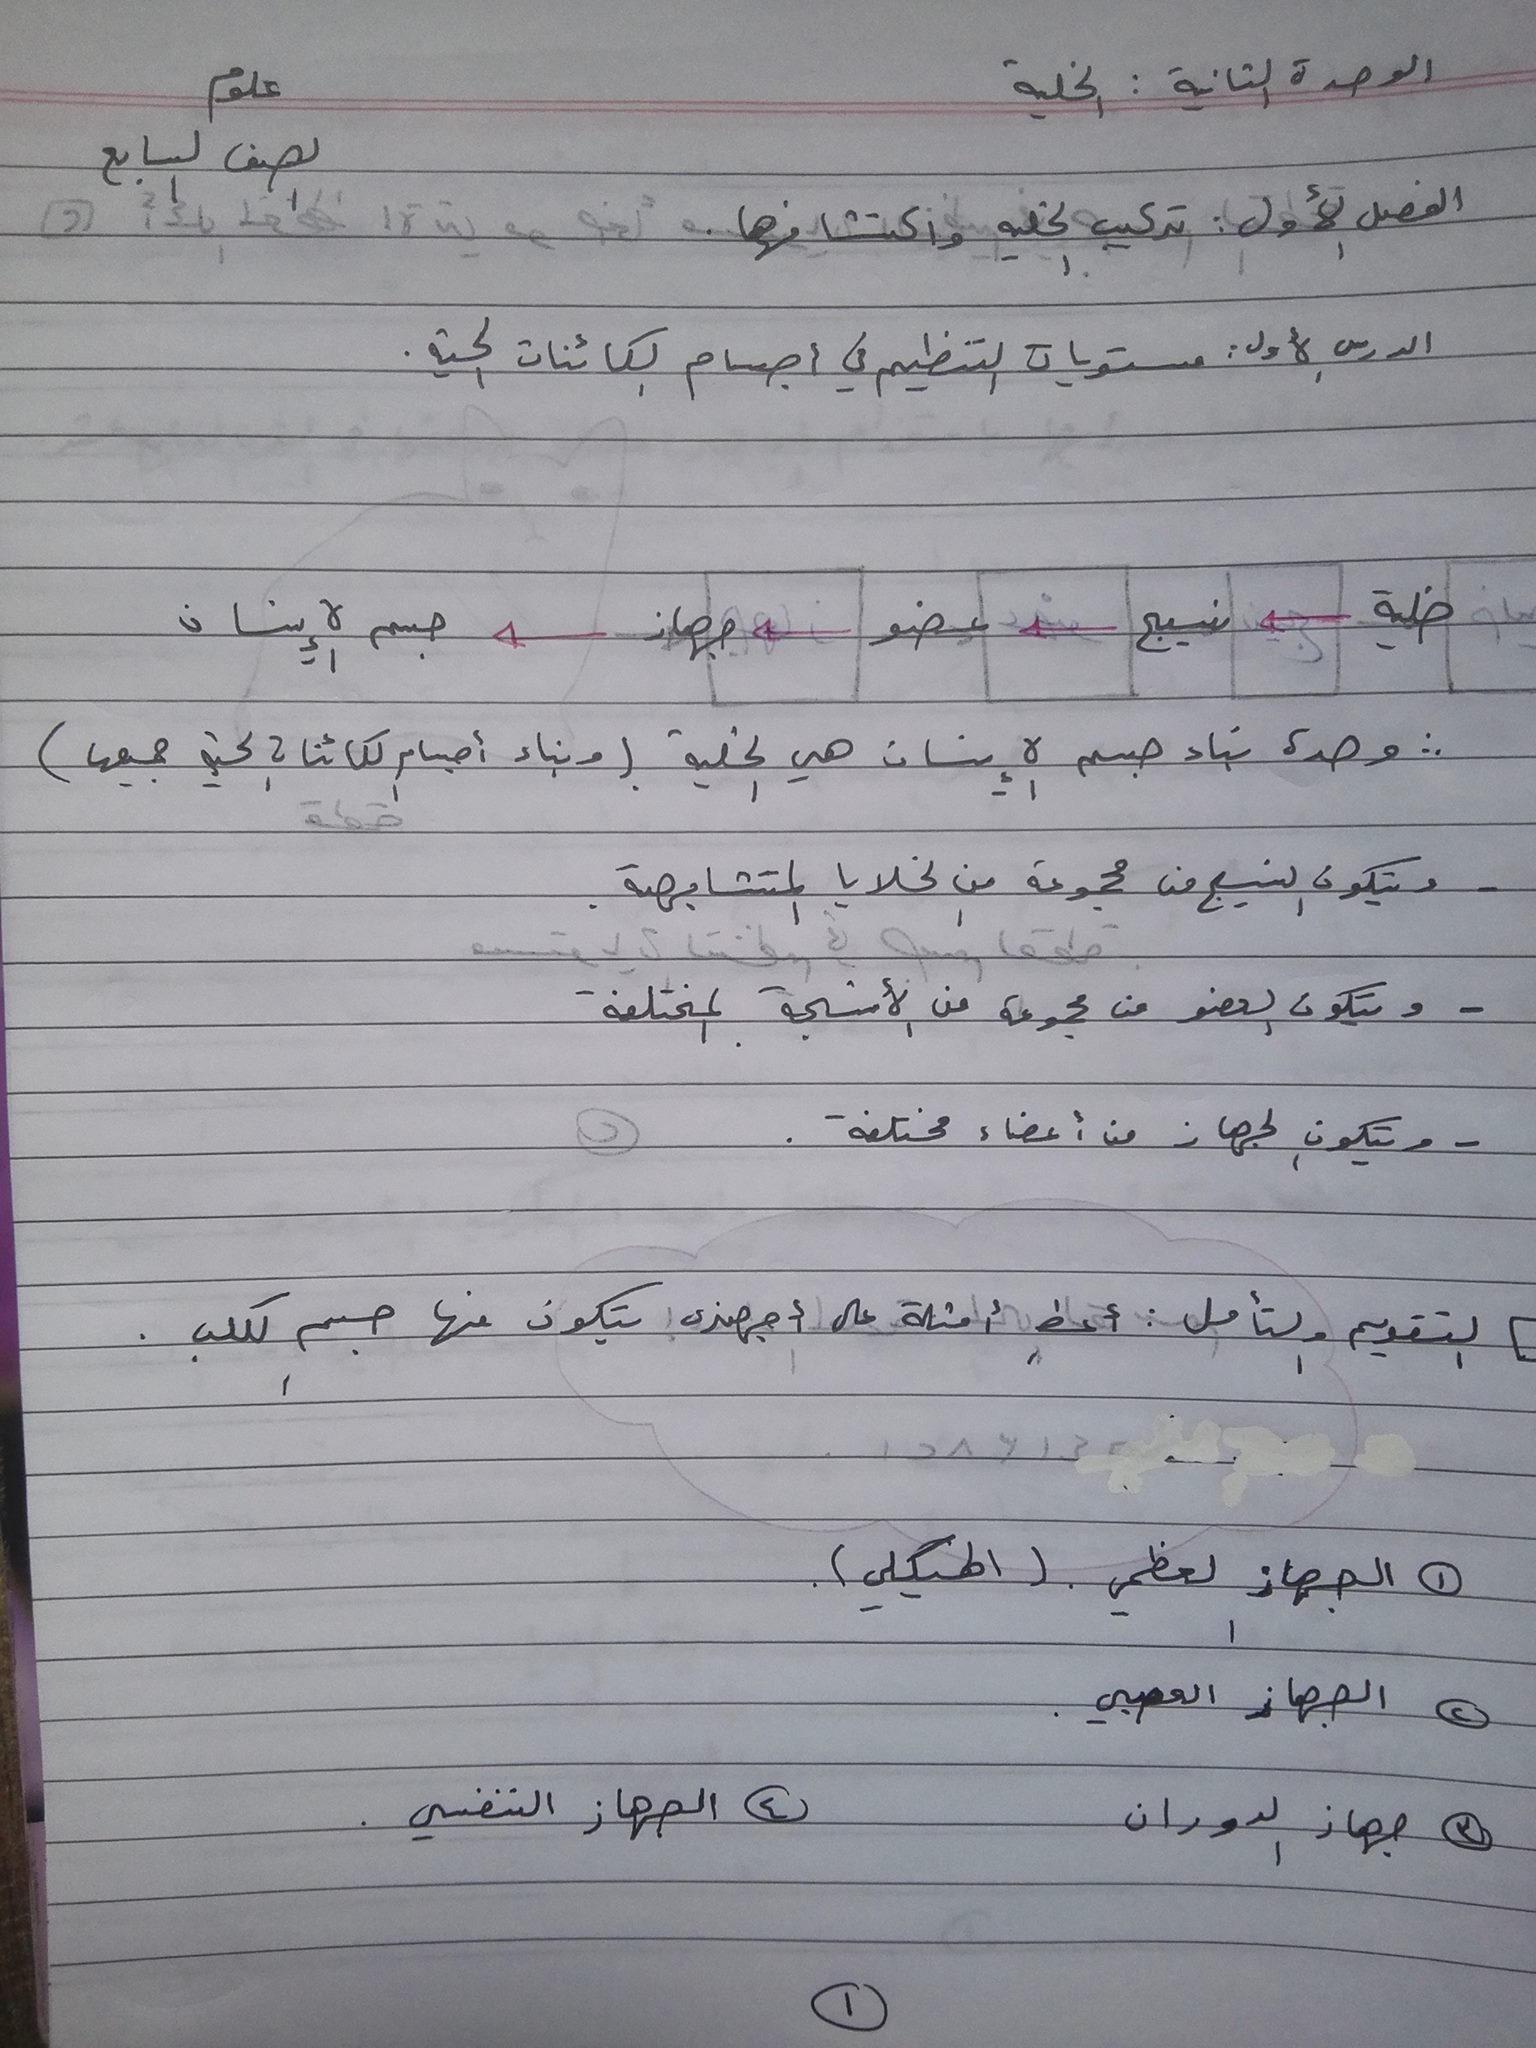 الوحدة الثانية : الخلية
علوم
الصف السابع
الفصل الأول : تركيب الخلية واكتشافها .
الدرس الأول : مستويات التنظيم في أجسام الكائنات الحية .
خلية ← نسيج ← عضو ← جهاز ← جسم الإنسان
∴ وحدة بناء جسم الإنسان هي الخلية ( وبناء أجسام الكائنات الحية جميعها )
- ويتكون النسيج من مجموعة من الخلايا المتشابهة .
- ويتكون العضو من مجموعة من الأنسجة المختلفة .
- ويتكون الجهاز من أعضاء مختلفة .
التقويم والتأمل : أعطِ أمثلة على أجهزة يتكون منها جسم الكلب .
① الجهاز العظمي . ( الهيكلي ) .
② الجهاز العصبي .
③ جهاز الدوران ④ الجهاز التنفسي .
①